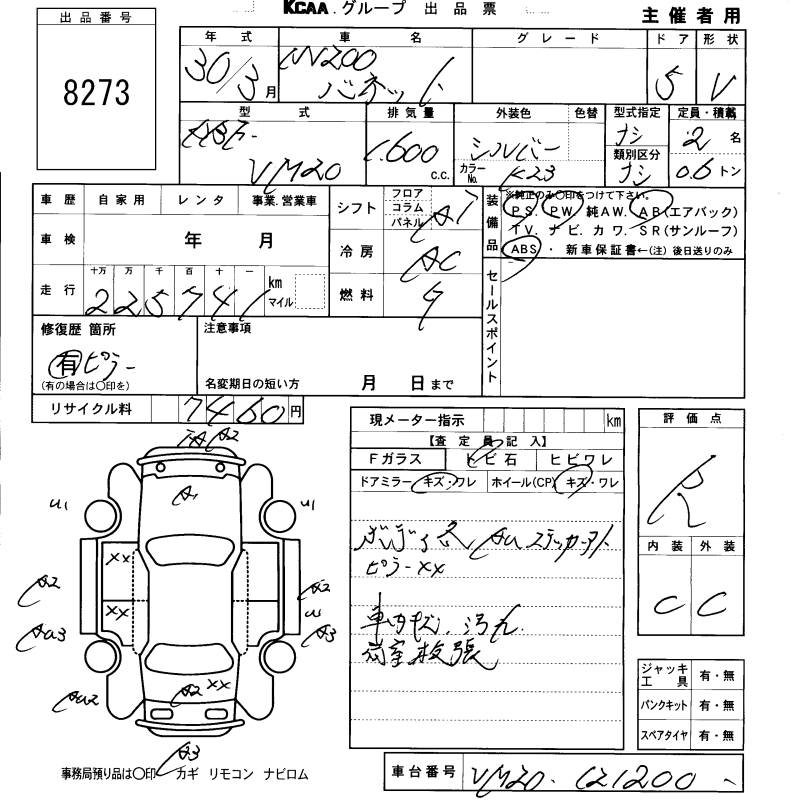 KCAA グループ 出品票
主催者用
出品番号
8273
年式 車名 グレード ドア 形状
30/3月 NV200 バネット 5 V
型式 排気量 外装色 色替 型式指定 定員・積載
VM20 1.600 c.c. シルバー カラーNo. K23 ナシ 類別区分 ナシ 2名 0.6トン
車歴 自家用 レンタ 事業.営業車
車検 年 月
走行 十万 万 千 百 十 一
225741 km マイル
シフト フロア コラム パネル AT
冷房 AC
燃料
装備品 ※純正のみ○印をつけて下さい。
PS. PW. 純AW. AB(エアバック)
TV. ナビ. カワ. SR(サンルーフ)
ABS ・ 新車保証書←(注) 後日送りのみ
セールスポイント
修復歴 箇所
有 ピラー
(有の場合は○印を)
注意事項
名変期日の短い方 月 日まで
リサイクル料 7460円
現メーター指示 km
【査定員記入】
Fガラス トビ石 ヒビワレ
ドアミラー キズ・ワレ ホイール(CP) キズ・ワレ
ステッカーアト
ピラーXX
車内キズ、汚れ
荷室板張
評価点
R
内装 外装
C C
A2
A1
U1 U1
XX
A2 A2
XX
U
A3
A2 XX
A3
ジャッキ 工具 有・無
パンクキット 有・無
スペアタイヤ 有・無
事務局預り品は○印 カギ リモコン ナビロム
車台番号 VM20- 121200